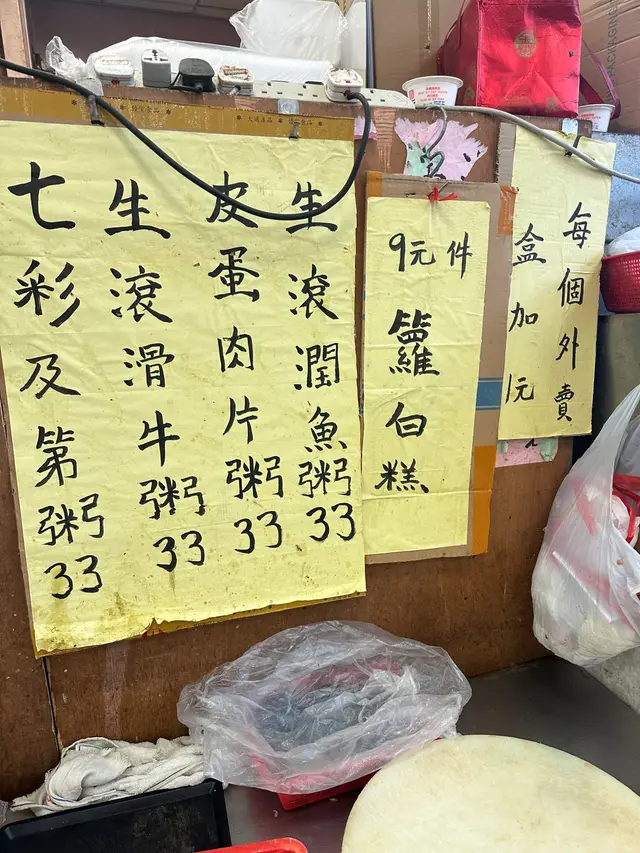 每個外賣
盒加1元
9元件
籮白糕
生滾潤魚粥33
皮蛋肉片粥33
生滾滑牛粥33
七彩及第粥33